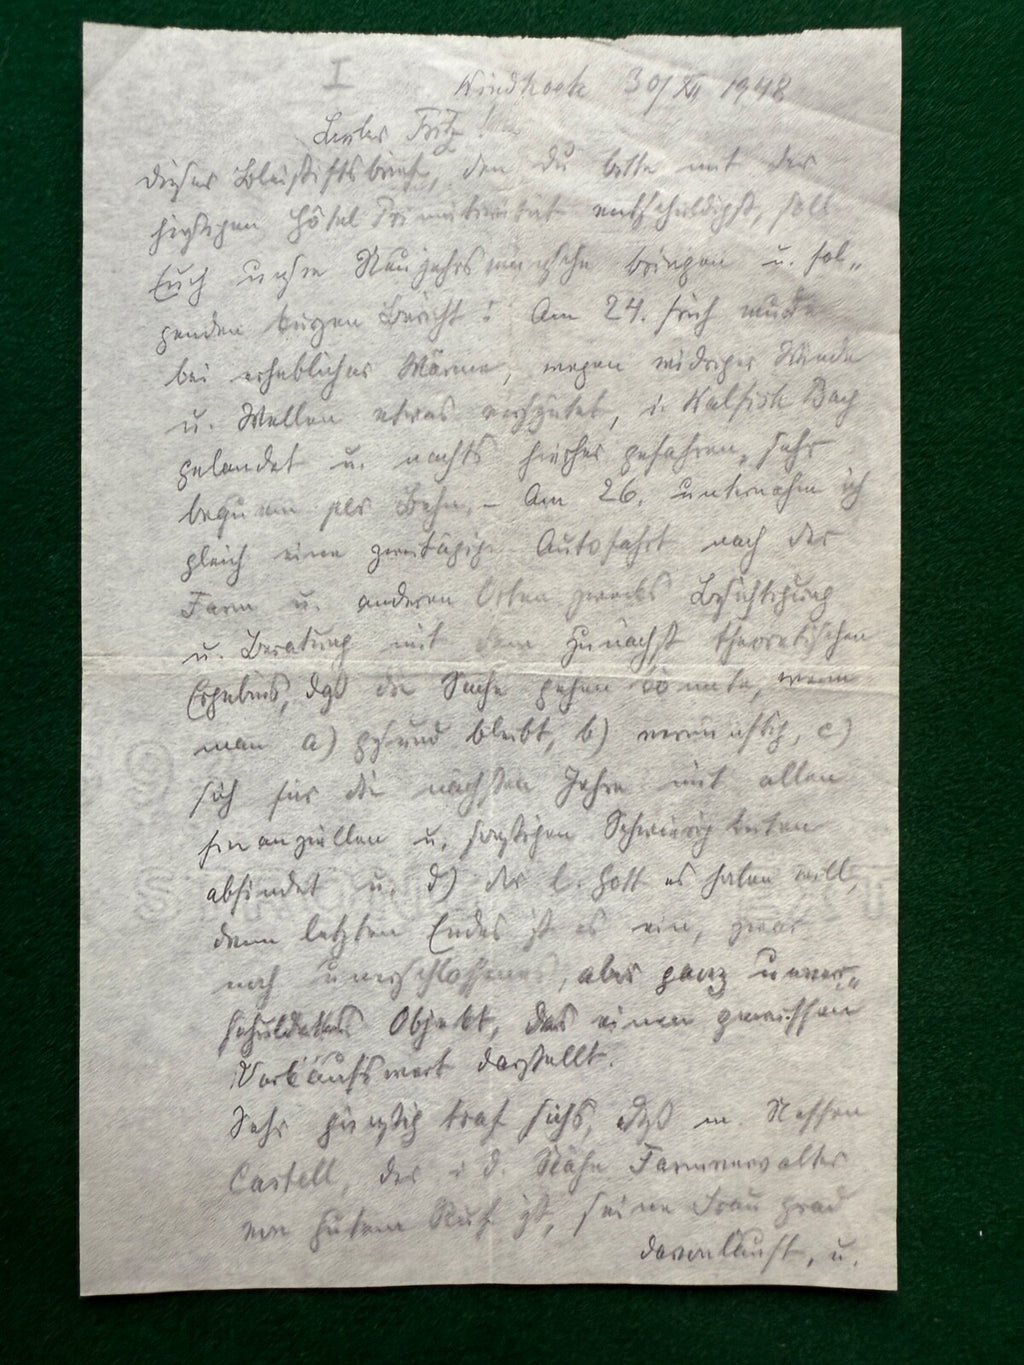 I Windhoek 30/XII 1948
Lieber Fritz!
Dieser Bleistiftbrief, den Du bitte mit der
hiesigen Hôtel Primitivität entschuldigst, soll
Euch unsre Neujahrswünsche bringen u. fol-
genden kurzen Bericht! Am 24. früh wurde
bei erheblicher Wärme, wegen widriger Winde
u. Wellen etwas verspätet, i. Walfisch Bay
gelandet u. nachts hierher gefahren, sehr
bequem per Bahn. – Am 26. unternahm ich
gleich eine zweitägige Autofahrt nach der
Farm u. anderen Orten zwecks Besichtigung
u. Beratung mit dem zunächst theoretischen
Ergebnis, daß die Sache gehen könnte, wenn
man a) gesund bleibt, b) vernünftig, c)
sich für die nächsten Jahre mit allen
finanziellen u. sonstigen Schwierigkeiten
abfindet u. d) der l. Gott es haben will,
denn letzten Endes ist es ein, zwar
noch unerschlossenes, aber ganz unver-
schuldetes Objekt, das einen gewissen
Verkaufswert darstellt.
Sehr günstig traf sichs, daß m. Neffen
Castell, der i d. Nähe Farmverwalter
von gutem Ruf ist, seine Frau grad
davonläuft, u.